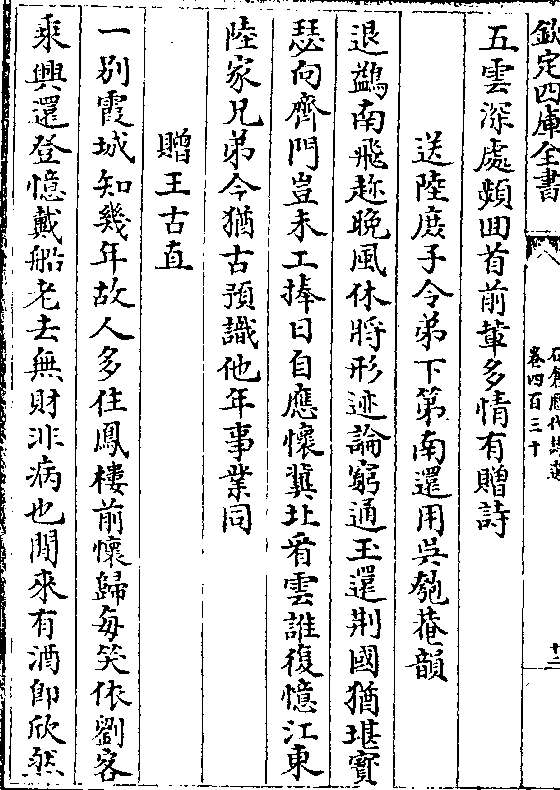 欽定四庫全書
卷四百三十
五雲深處頻回首前輩多情有贈詩
送陸廉子令弟下第南還用吳匏菴韻
退鷁南飛趂晚風休將形迹論窮通玉還荆國猶堪寳
瑟向齊門豈未工捧日自應懷冀北看雲誰復憶江東
陸家兄弟今猶古預識他年事業同
贈王古直
一别霞城知幾年故人多住鳳樓前懷歸每笑依劉客
乘興還登憶戴船老去無財非病也閒來有酒即欣然